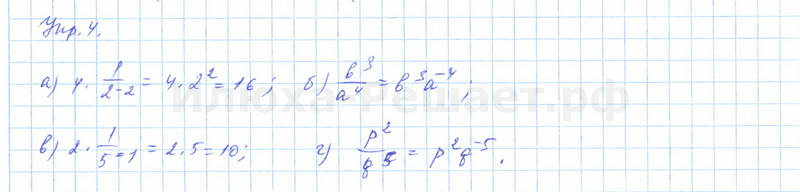 Упр. 4.
а) 4 · 1/2⁻² = 4 · 2² = 16; б) b³/a⁴ = b³a⁻⁴;
в) 2 · 1/5⁻¹ = 2 · 5 = 10; г) p²/q⁵ = p²q⁻⁵.
Илюха-Решает.рф